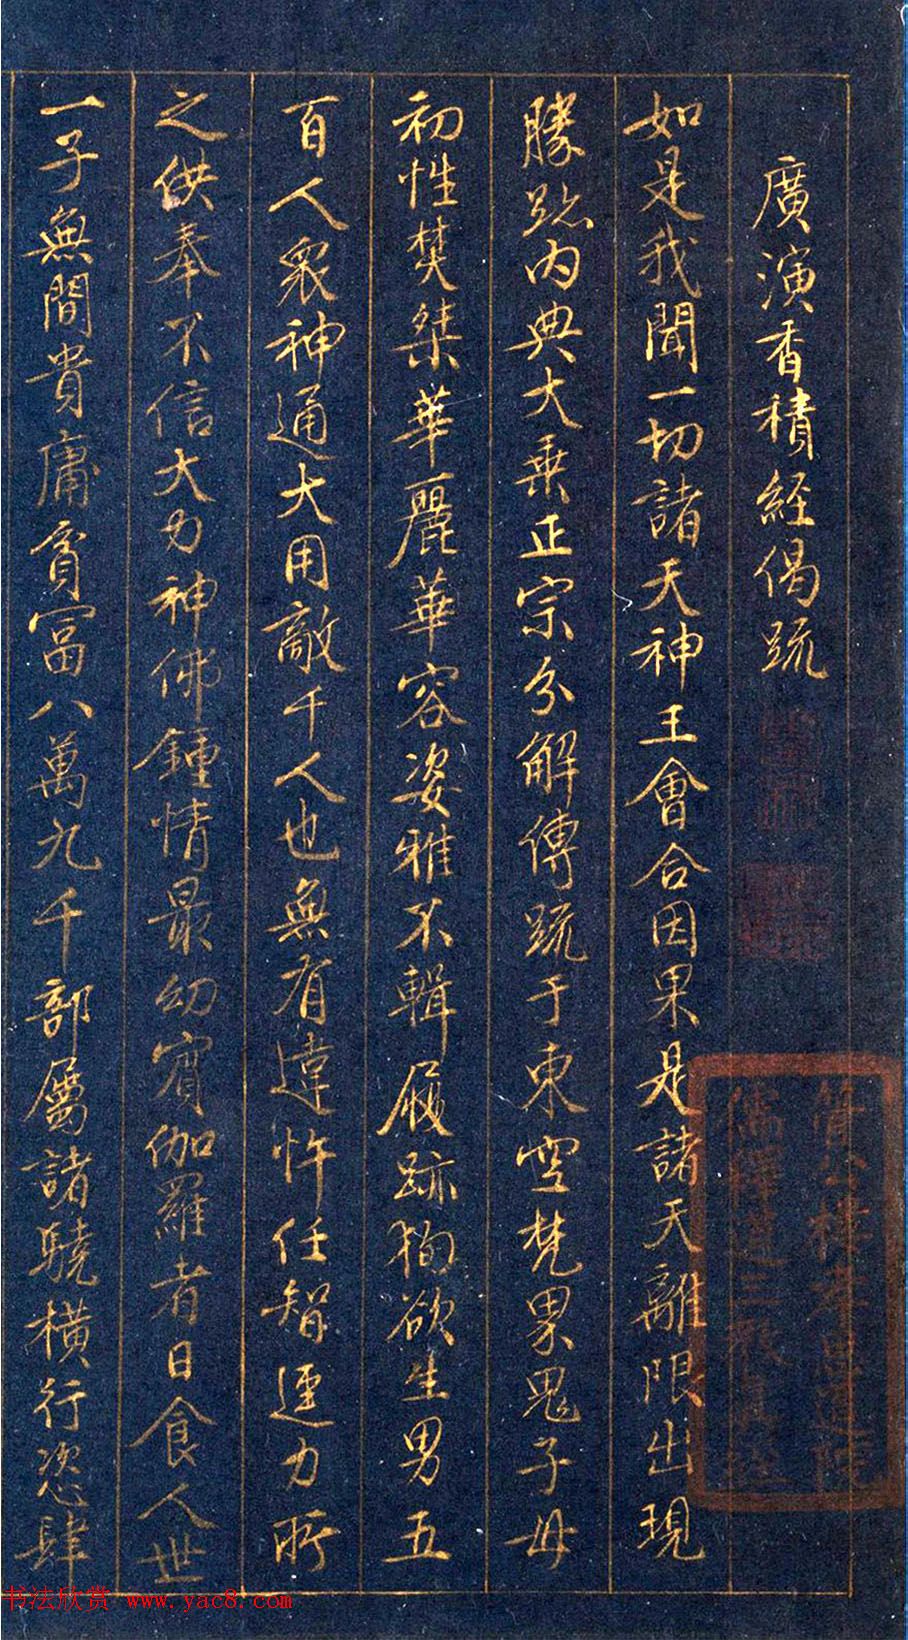 廣演香積經偈疏
如是我聞一切諸天神王會合因果是諸天離限出現
勝跡内典大乗正宗分解傳疏于東空梵界鬼子母
初性焚桀華麗華容姿雅不輯履跡狥欲生男五
百人衆神通大用敵千人也無有違忤任智運力所
之供奉不信大力神佛鍾情最幼賓伽羅者日食人世
一子無間貴庸賓富八萬九千部屬諸驍横行恣肆
儒釋道三教
书法欣赏 www.yac8.com